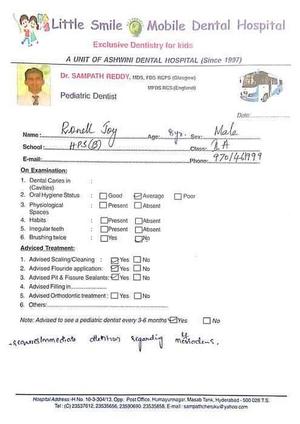 Little Smile Mobile Dental Hospital
Exclusive Dentistry for kids
A UNIT OF ASHWINI DENTAL HOSPITAL (Since 1997)
Dr. SAMPATH REDDY, MDS, FDS RCPS (Glasgow)
MFDS RCS (England)
Pediatric Dentist
Date:
Name: Ronell Joy Age: 8yrs. Sex: Male
School: HPS(B) Class: A
E-mail: Phone:
On Examination :
1. Dental Caries in :
(Cavities)
2. Oral Hygiene Status : Good Average Poor
3. Physiological : Present Absent
Spaces
4. Habits : Present Absent
5. Irregular teeth : Present Absent
6. Brushing twice : Yes No
Adviced Treatment:
1. Advised Scaling/Cleaning : Yes No
2. Advised Flouride application: Yes No
3. Advised Pit & Fissure Sealants: Yes No
4. Advised Filling in
5. Advised Orthodontic treatment : Yes No
6. Others:
Note: Advised to see a pediatric dentist every 3-6 months Yes No
immediate attention regarding mesiodens.
Hospital Address -H.No. 10-3-304/13, Opp. Post Office, Humayunnagar, Masab Tank, Hyderabad - 500 028 T.S.
Tel : (C) 23537612, 23535656, 23590690 23535658, E-mail : sampathcheruku@yahoo.com